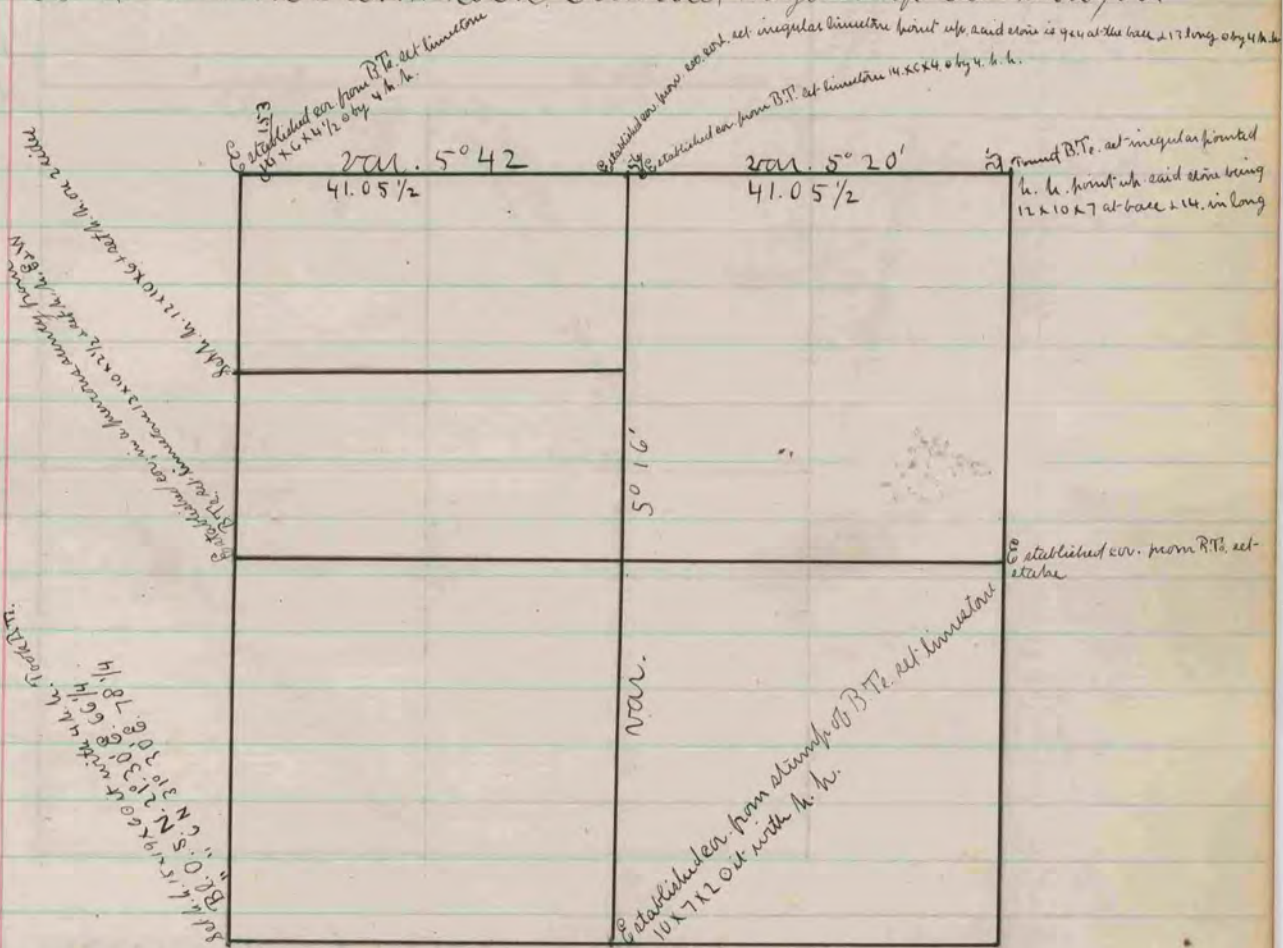 Established cor from B.Te. set limestone
10 x 6 x 4 1/2 o by 4 h. h.
1.53
Established cor from
set irregular limestone point up, said stone is 9x4 at the base & 13 long o by 4 h. h.
Established cor from B.T. set limestone 14.x6x4. o by 4. h. h.
Found B.Te. set irregular pointed
h. h. point up said stone being
12 x 10 x 7 at base & 14. in long
var. 5° 42
var. 5° 20'
41.05 1/2
41.05 1/2
Set h. h. 12x10x6 & set h. h. on 2 sides
Established cor, in a previous survey from
B.Te. set limestone 13 x 10 x 2 1/2 & cut h. h. E & W
5° 16'
var.
Established cor. from B.Te. set
stake
Established cor. from stump of B.Te. set limestone
10 x 7 x 2 o it with h. h.
Set h. h. 15 x 19 x 6 o it with 4 h. h. Took B.T.
Bl. O. 5 N. 21° 30' E. 66 1/4
" " 6 N 31° 30' E. 78 1/4